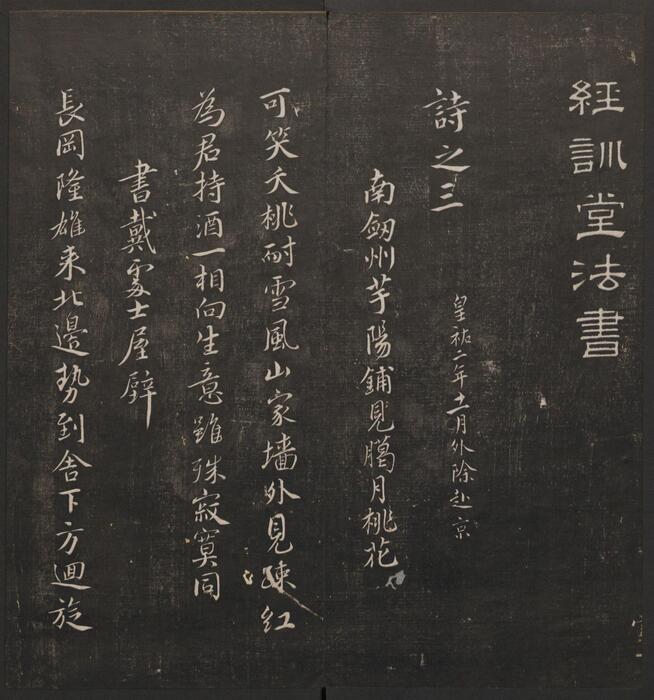 經訓堂法書
詩之三
皇祐二年十一月外除赴京
南劒州芋陽鋪見臈月桃花
可笑夭桃耐雪風山家墻外見疎紅
為君持酒一相向生意雖殊寂寞同
書戴處士屋壁
長岡隆雄来北邊勢到舍下方迴旋